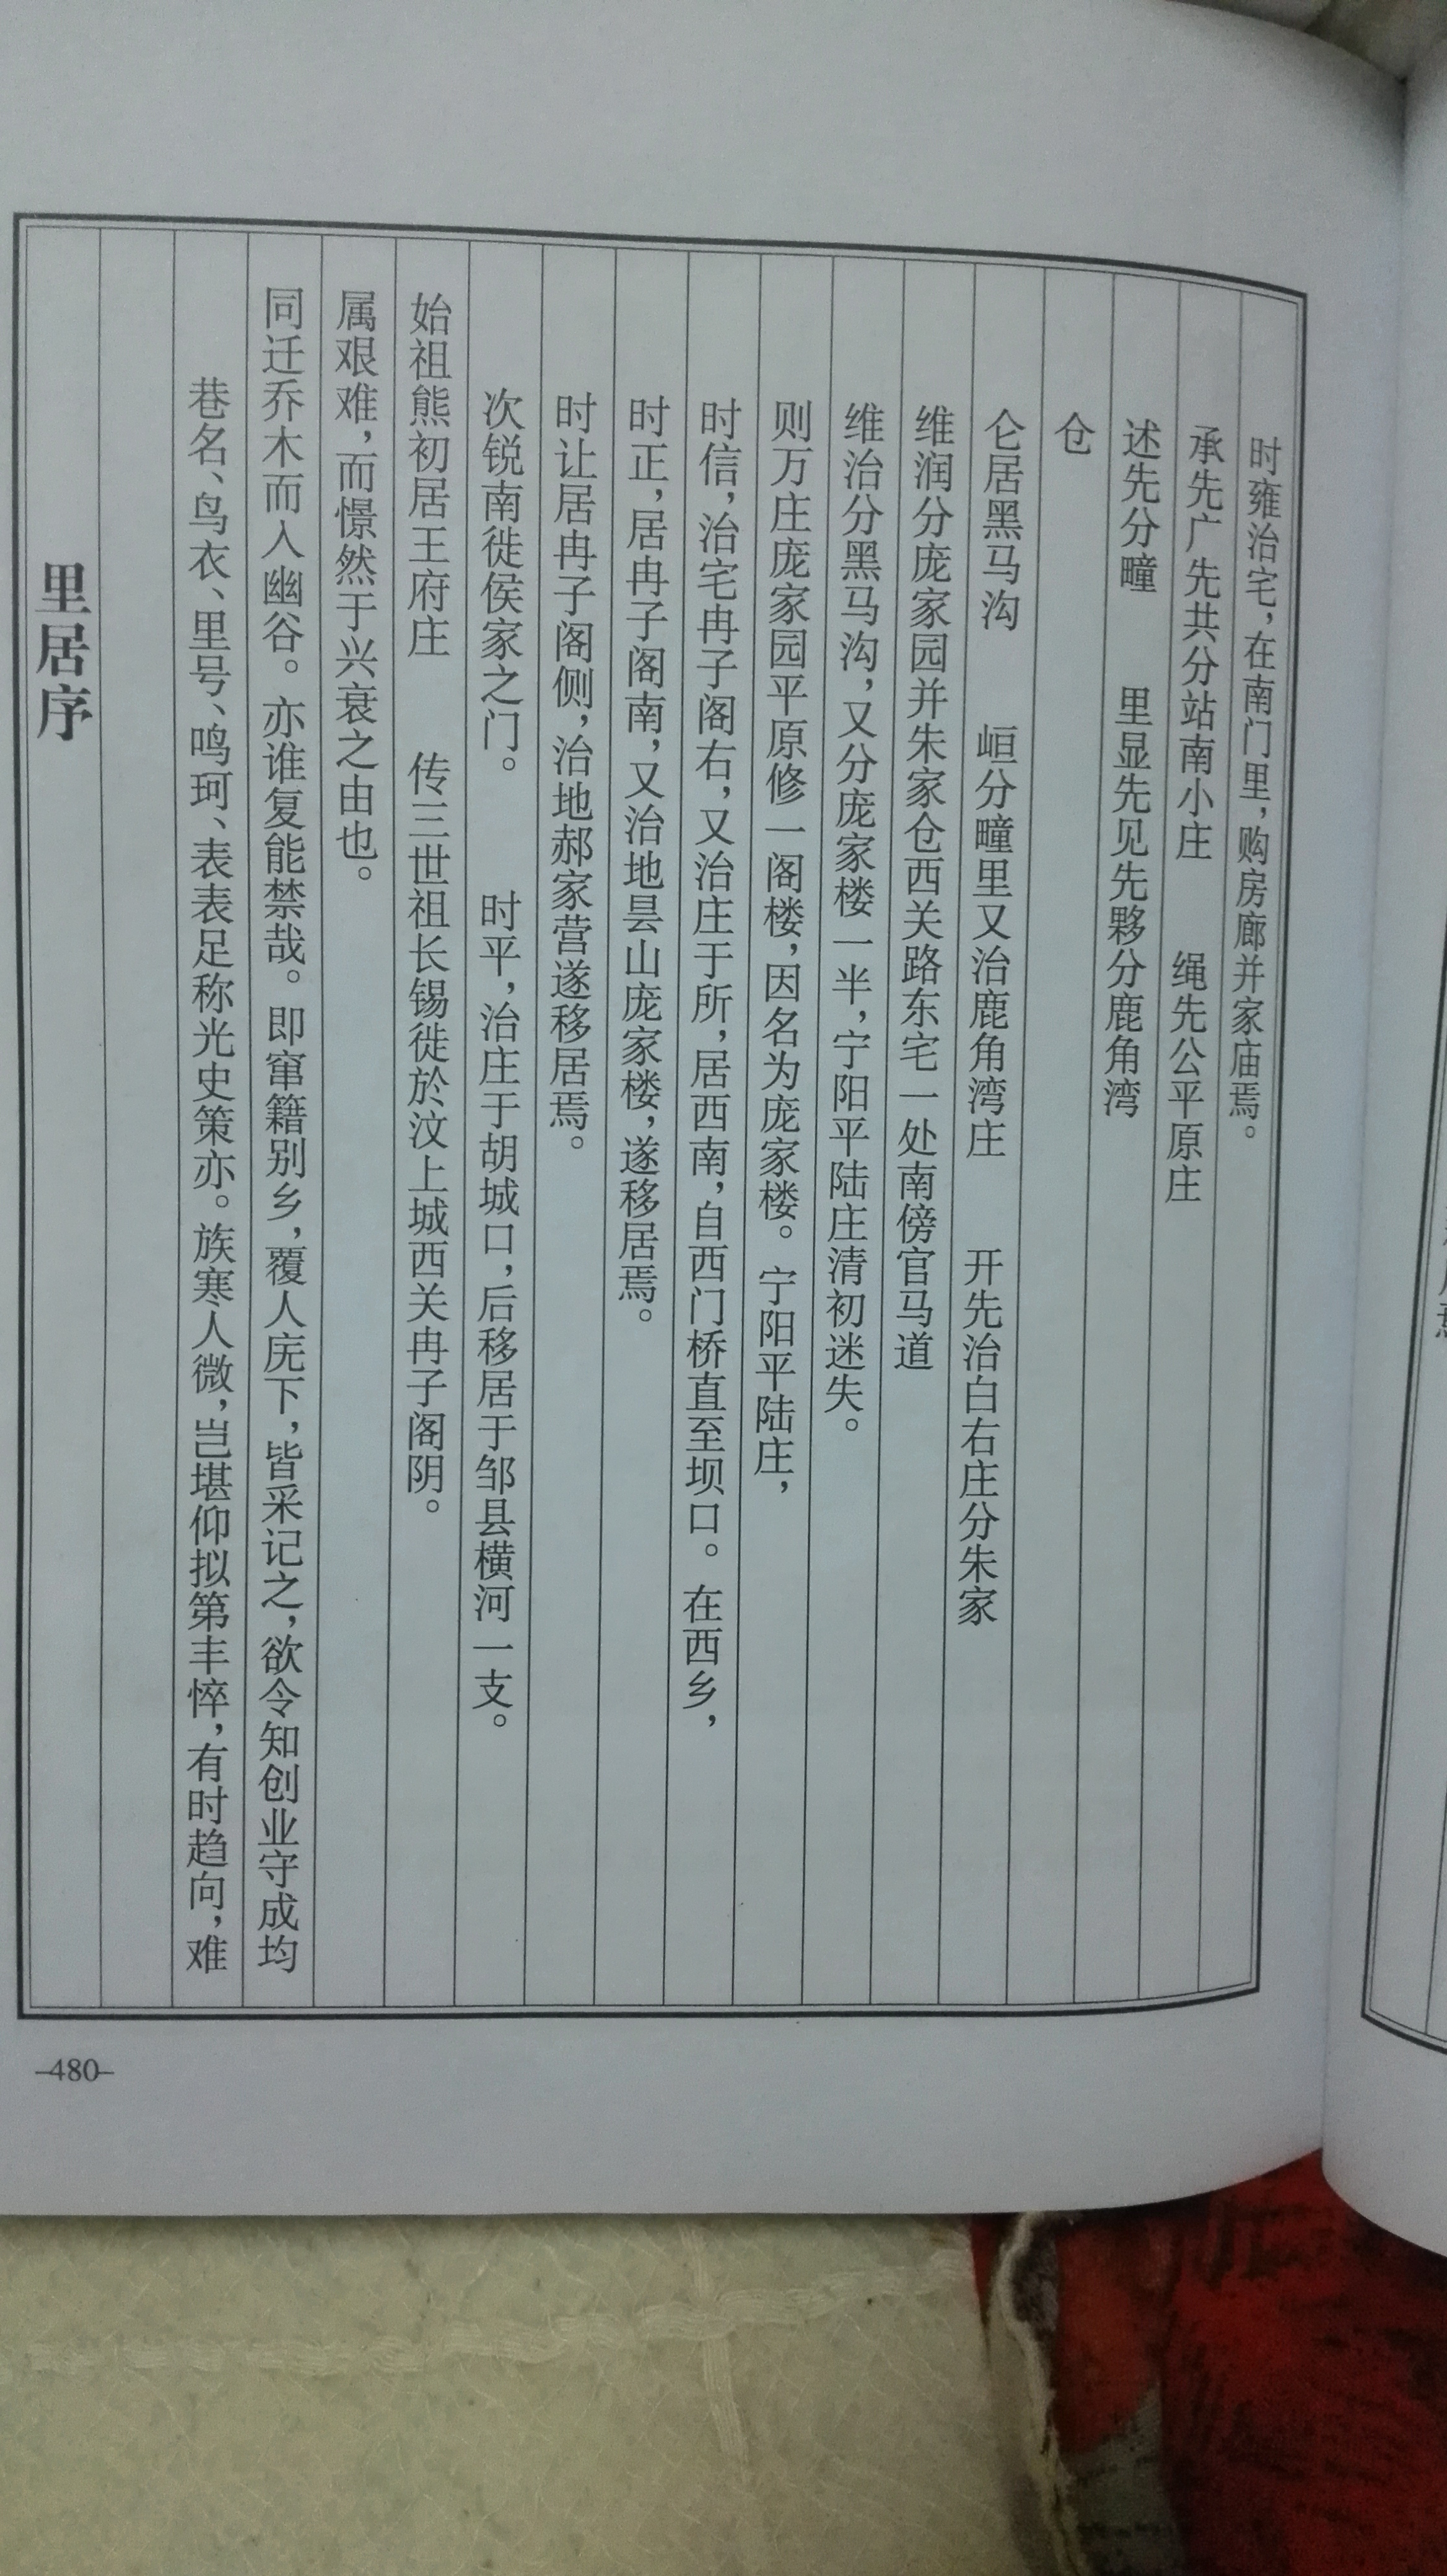 里居序
巷名、鸟衣、里号、鸣珂、表表足称光史策亦。族寒人微，岂堪仰拟第丰悴，有时趋向，难
同迁乔木而入幽谷。亦谁复能禁哉。即窜籍别乡，覆人庑下，皆采记之，欲令知创业守成均
属艰难，而憬然于兴衰之由也。
始祖熊初居王府庄　　传三世祖长锡徙於汶上城西关冉子阁阴。
次锐南徙侯家之门。　　时平，治庄于胡城口，后移居于邹县横河一支。
时让居冉子阁侧，治地郝家营遂移居焉。
时正，居冉子阁南，又治地昙山庞家楼，遂移居焉。
时信，治宅冉子阁右，又治庄于所，居西南，自西门桥直至坝口。在西乡，
则万庄庞家园平原修一阁楼，因名为庞家楼。宁阳平陆庄，
维治分黑马沟，又分庞家楼一半，宁阳平陆庄清初迷失。
维润分庞家园并朱家仓西关路东宅一处南傍官马道
仑居黑马沟　　峘分疃里又治鹿角湾庄　　开先治白右庄分朱家
仓
述先分疃　　里显先见先夥分鹿角湾
承先广先共分站南小庄　　绳先公平原庄
时雍治宅，在南门里，购房廊并家庙焉。
–480–